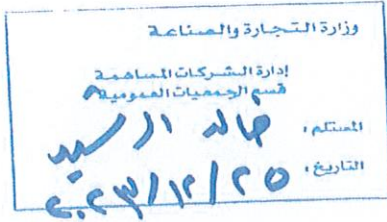 وزارة التجارة والصناعة
إدارة الشركات المساهمة
قسم الجمعيات العمومية
المستلم: خالد الرسيد
التاريخ: ٢٠٢٣/١٢/٢٥